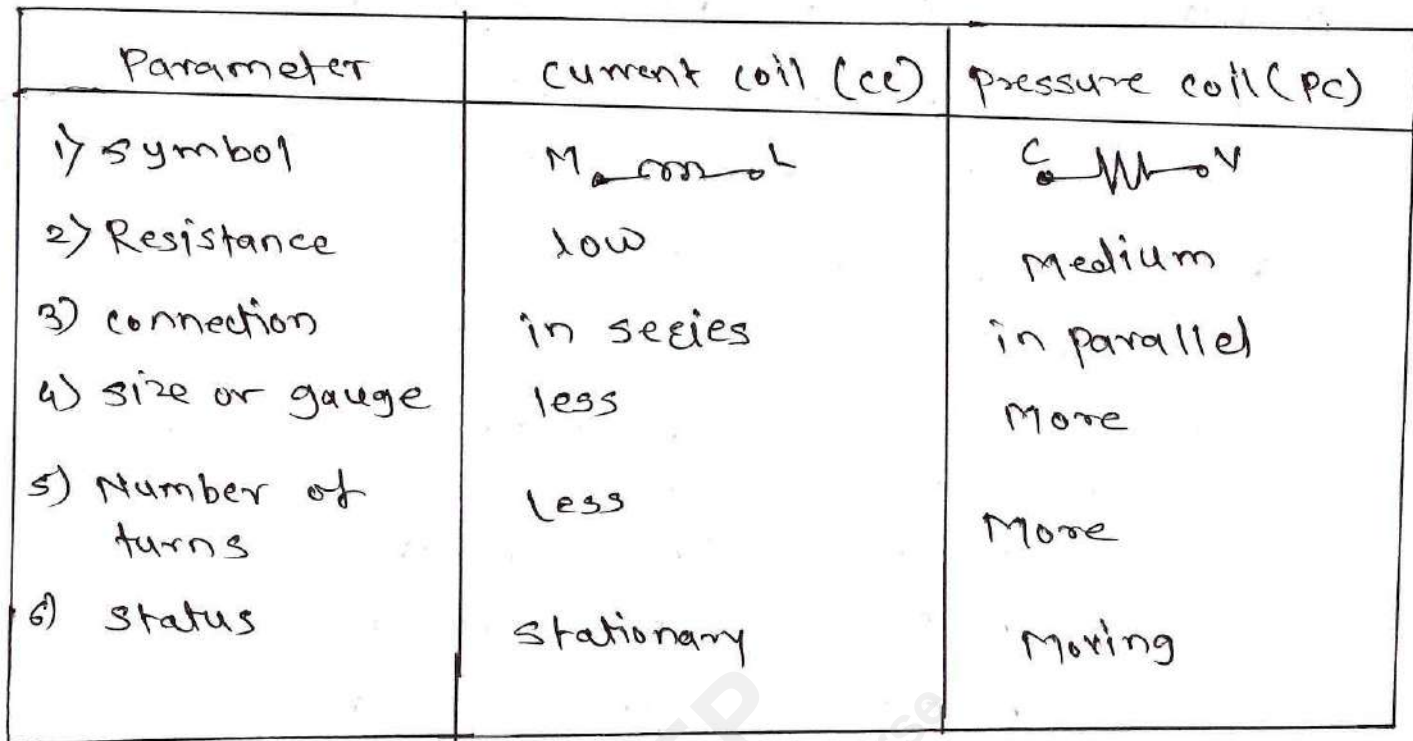 Parameter current coil (cc) pressure coil (PC)
1) symbol M L C V
2) Resistance low Medium
3) connection in series in parallel
4) size or gauge less More
5) Number of less More
turns
6) status stationary Moving